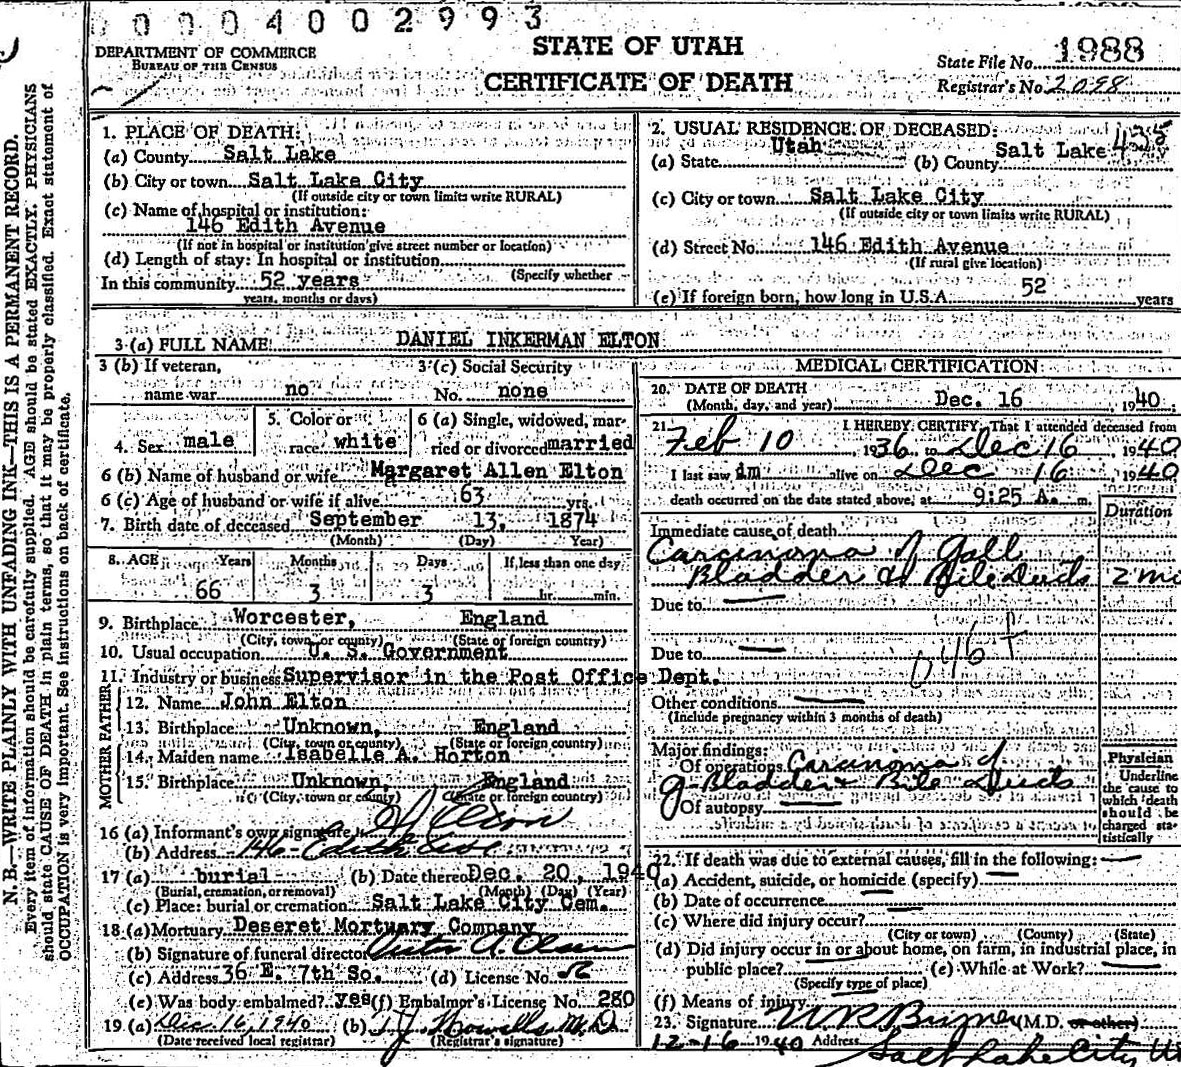 00004002993
DEPARTMENT OF COMMERCE
BUREAU OF THE CENSUS
STATE OF UTAH
CERTIFICATE OF DEATH
State File No. 1988
Registrar's No. 2098
N. B.—WRITE PLAINLY WITH UNFADING INK—THIS IS A PERMANENT RECORD.
Every item of information should be carefully supplied. AGE should be stated EXACTLY. PHYSICIANS
should state CAUSE OF DEATH in plain terms, so that it may be properly classified. Exact statement of
OCCUPATION is very important. See instructions on back of certificate.
1. PLACE OF DEATH:
(a) County Salt Lake
(b) City or town Salt Lake City
(If outside city or town limits write RURAL)
(c) Name of hospital or institution:
146 Edith Avenue
(If not in hospital or institution give street number or location)
(d) Length of stay: In hospital or institution
(Specify whether
In this community 52 years
years, months or days)
2. USUAL RESIDENCE OF DECEASED: 435
(a) State Utah (b) County Salt Lake
(c) City or town Salt Lake City
(If outside city or town limits write RURAL)
(d) Street No. 146 Edith Avenue
(If rural give location)
(e) If foreign born, how long in U.S.A. 52 years
3 (a) FULL NAME DANIEL INKERMAN ELTON
3 (b) If veteran,
name war no
3 (c) Social Security
No. none
4. Sex male
5. Color or
race white
6 (a) Single, widowed, mar-
ried or divorced married
6 (b) Name of husband or wife Margaret Allen Elton
6 (c) Age of husband or wife if alive 63 yrs.
7. Birth date of deceased September 13, 1874
(Month) (Day) Year)
8. AGE Years Months Days If less than one day
66 3 3 hr. min.
9. Birthplace Worcester, England
(City, town or county) (State or foreign country)
10. Usual occupation U. S. Government
11. Industry or business Supervisor in the Post Office Dept.
FATHER
12. Name John Elton
13. Birthplace Unknown, England
(City, town or county) (State or foreign country)
MOTHER
14. Maiden name Isabelle A. Horton
15. Birthplace Unknown, England
(City, town or county) (State or foreign country)
16 (a) Informant's own signature Elton
(b) Address 146 Edith Ave
17 (a) burial (b) Date thereof Dec. 20, 1940
(Burial, cremation, or removal) (Month) (Day) (Year)
(c) Place: burial or cremation Salt Lake City Cem.
18 (a) Mortuary Deseret Mortuary Company
(b) Signature of funeral director Victor A. Olsen
(c) Address 36 E. 7th So. (d) License No. 52
(e) Was body embalmed? yes (f) Embalmor's License No. 280
19 (a) Dec. 16, 1940 (b) T. J. Howells M.D.
(Date received local registrar) (Registrar's signature)
MEDICAL CERTIFICATION
20. DATE OF DEATH
(Month, day, and year) Dec. 16, 1940
21. I HEREBY CERTIFY, That I attended deceased from
Feb 10, 1936 to Dec 16, 1940
I last saw im alive on Dec 16, 1940
death occurred on the date stated above, at 9:25 A. m.
Duration
Immediate cause of death
Carcinoma of Gall
Bladder & Bile Ducts 2 mo
Due to
046f
Due to
Other conditions
(Include pregnancy within 3 months of death)
Major findings:
Of operations Carcinoma of
g-Bladder & Bile Ducts
Of autopsy
Physician
Underline
the cause to
which death
should be
charged sta-
tistically
22. If death was due to external causes, fill in the following:
(a) Accident, suicide, or homicide (specify)
(b) Date of occurrence
(c) Where did injury occur?
(City or town) (County) (State)
(d) Did injury occur in or about home, on farm, in industrial place, in
public place? (e) While at Work?
(Specify type of place)
(f) Means of injury
23. Signature (M.D. or other)
12-16 1940 Address Salt Lake City